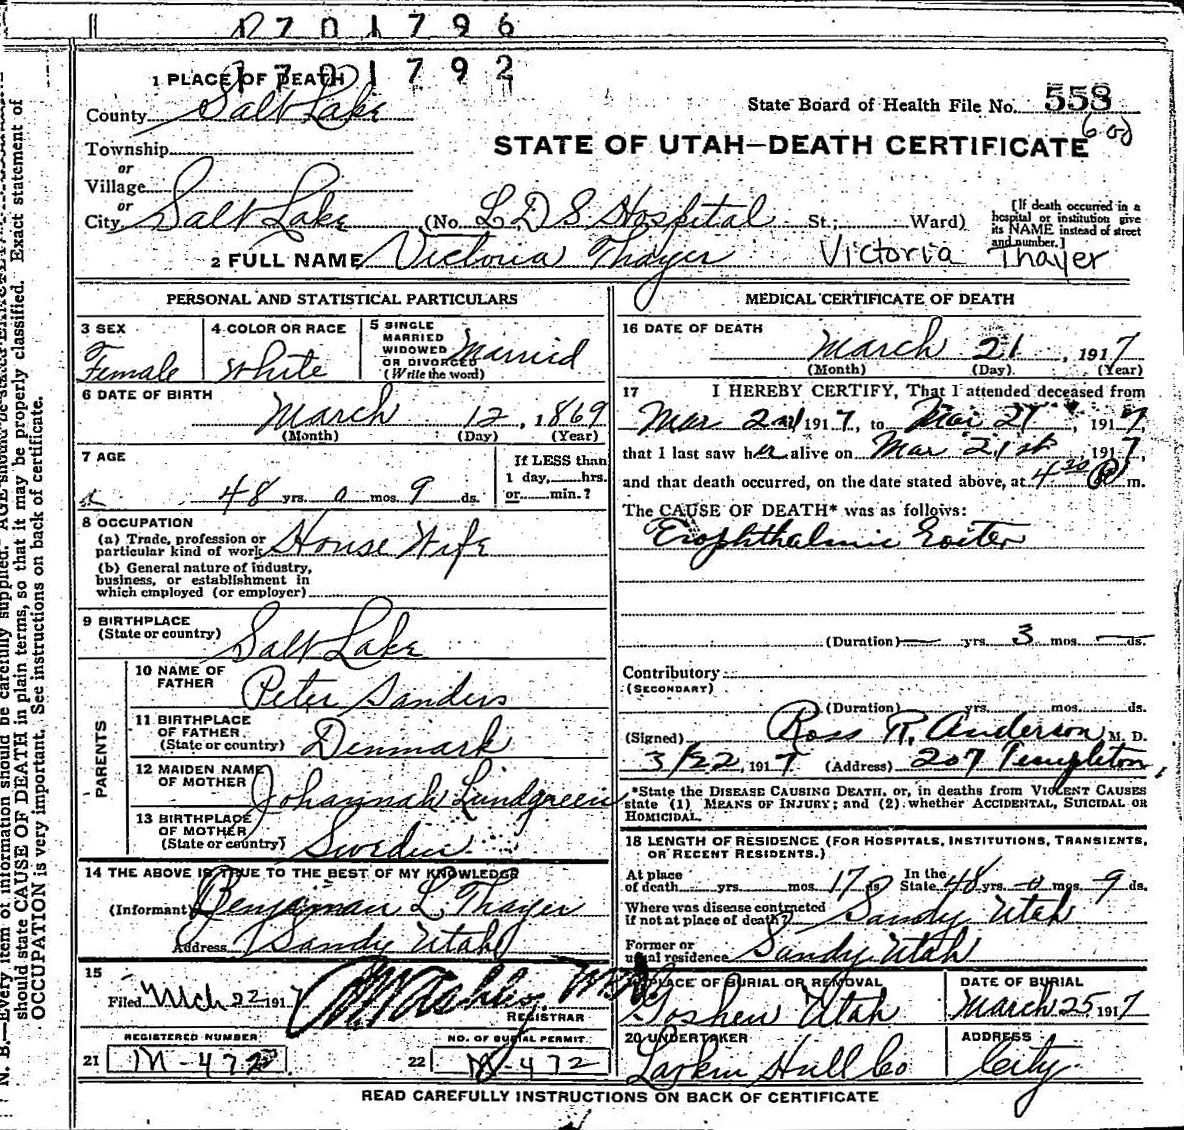 D701796
1701792
1 PLACE OF DEATH
County Salt Lake
State Board of Health File No. 558
Township
or
Village
or
City Salt Lake (No. L D S Hospital St.; Ward)
STATE OF UTAH—DEATH CERTIFICATE
[If death occurred in a hospital or institution give its NAME instead of street and number.]
2 FULL NAME Victoria Thayer Victoria Thayer
PERSONAL AND STATISTICAL PARTICULARS
3 SEX Female
4 COLOR OR RACE White
5 SINGLE MARRIED WIDOWED OR DIVORCED (Write the word) Married
6 DATE OF BIRTH
March 12, 1869
(Month) (Day) (Year)
7 AGE
48 yrs. 0 mos. 9 ds.
If LESS than
1 day,......hrs.
or......min.?
8 OCCUPATION
(a) Trade, profession or particular kind of work House Wife
(b) General nature of industry, business, or establishment in which employed (or employer)
9 BIRTHPLACE
(State or country) Salt Lake
PARENTS
10 NAME OF FATHER Peter Sanders
11 BIRTHPLACE OF FATHER (State or country) Denmark
12 MAIDEN NAME OF MOTHER Johannah Lundgreen
13 BIRTHPLACE OF MOTHER (State or country) Sweden
14 THE ABOVE IS TRUE TO THE BEST OF MY KNOWLEDGE
(Informant) Benjaman L. Thayer
Address Sandy Utah
15
Filed Mch 22 1917
REGISTRAR
REGISTERED NUMBER
21 M-472
NO. OF BURIAL PERMIT
22 M-472
MEDICAL CERTIFICATE OF DEATH
16 DATE OF DEATH
March 21, 1917
(Month) (Day) (Year)
17 I HEREBY CERTIFY, That I attended deceased from
Mar 1917, to Mar 21, 1917,
that I last saw her alive on Mar 21st, 1917,
and that death occurred, on the date stated above, at 4 30 P m.
The CAUSE OF DEATH* was as follows:
Exophthalmic Goiter
(Duration) — yrs. 3 mos. — ds.
Contributory
(SECONDARY)
(Duration) yrs. mos. ds.
(Signed) Ross R. Anderson M. D.
3/22, 1917 (Address) 207 Templeton
*State the DISEASE CAUSING DEATH, or, in deaths from VIOLENT CAUSES
state (1) MEANS OF INJURY; and (2) whether ACCIDENTAL, SUICIDAL OR
HOMICIDAL.
18 LENGTH OF RESIDENCE (FOR HOSPITALS, INSTITUTIONS, TRANSIENTS,
OR RECENT RESIDENTS.)
At place of death yrs. mos. 17 ds. In the State 48 yrs. 0 mos. 9 ds.
Where was disease contracted if not at place of death? Sandy Utah
Former or usual residence Sandy Utah
PLACE OF BURIAL OR REMOVAL
Goshen Utah
DATE OF BURIAL
March 25 1917
20 UNDERTAKER
Larkin Hull Co
ADDRESS
City
READ CAREFULLY INSTRUCTIONS ON BACK OF CERTIFICATE
N. B.—Every item of information should be carefully supplied. AGE should be stated EXACTLY.
should state CAUSE OF DEATH in plain terms, so that it may be properly classified. Exact statement of
OCCUPATION is very important. See instructions on back of certificate.